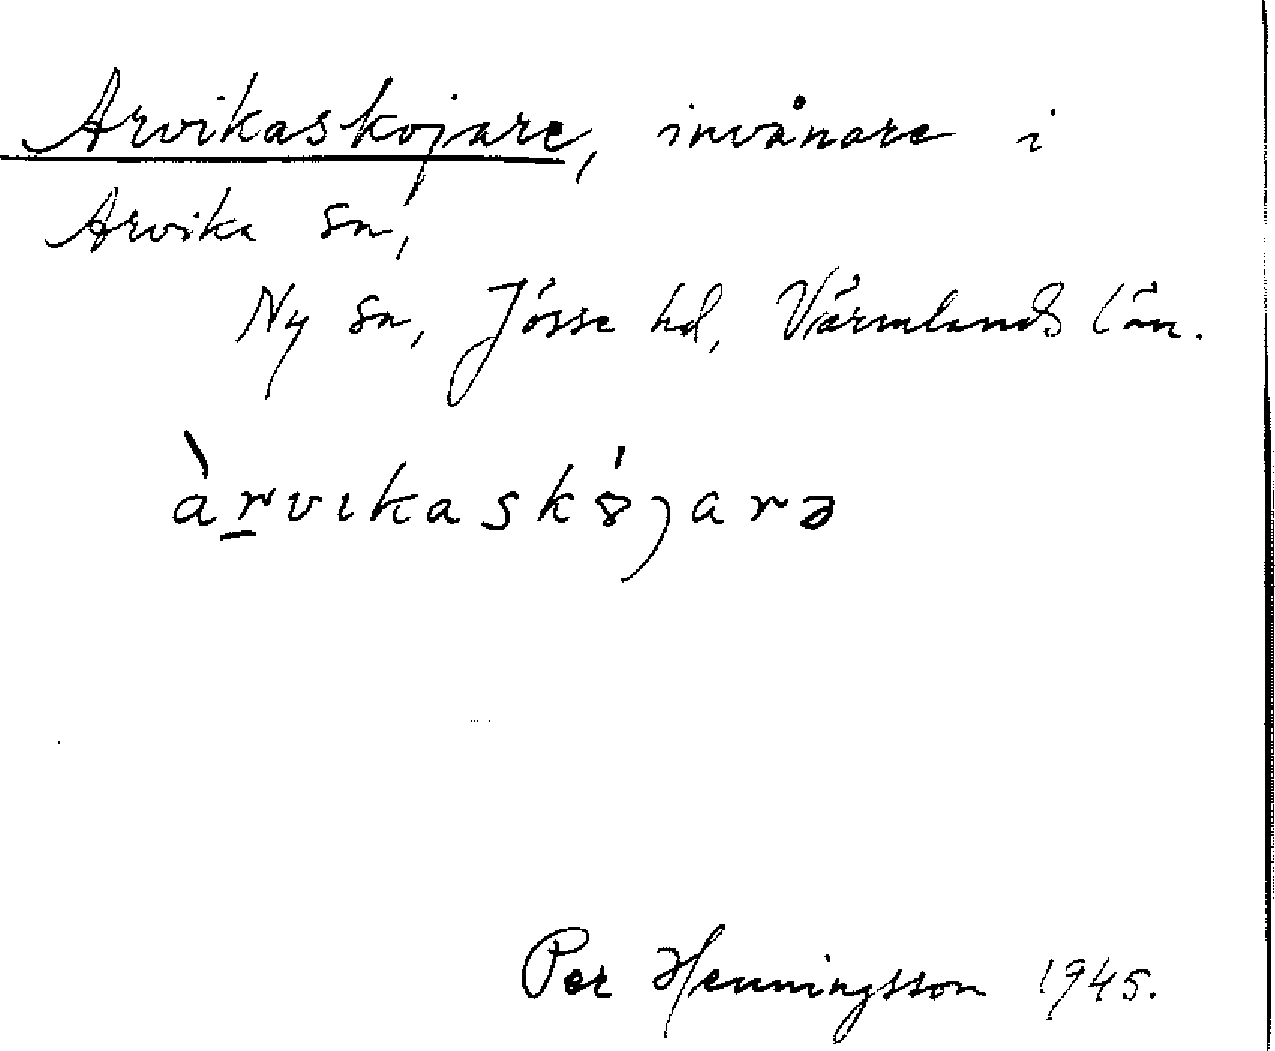 Arvikaskojare, invånare i
Arvika sn,
Ny sn, Jösse hd, Värmlands län.
àrvikaskójarə
Per Henningsson 1945.